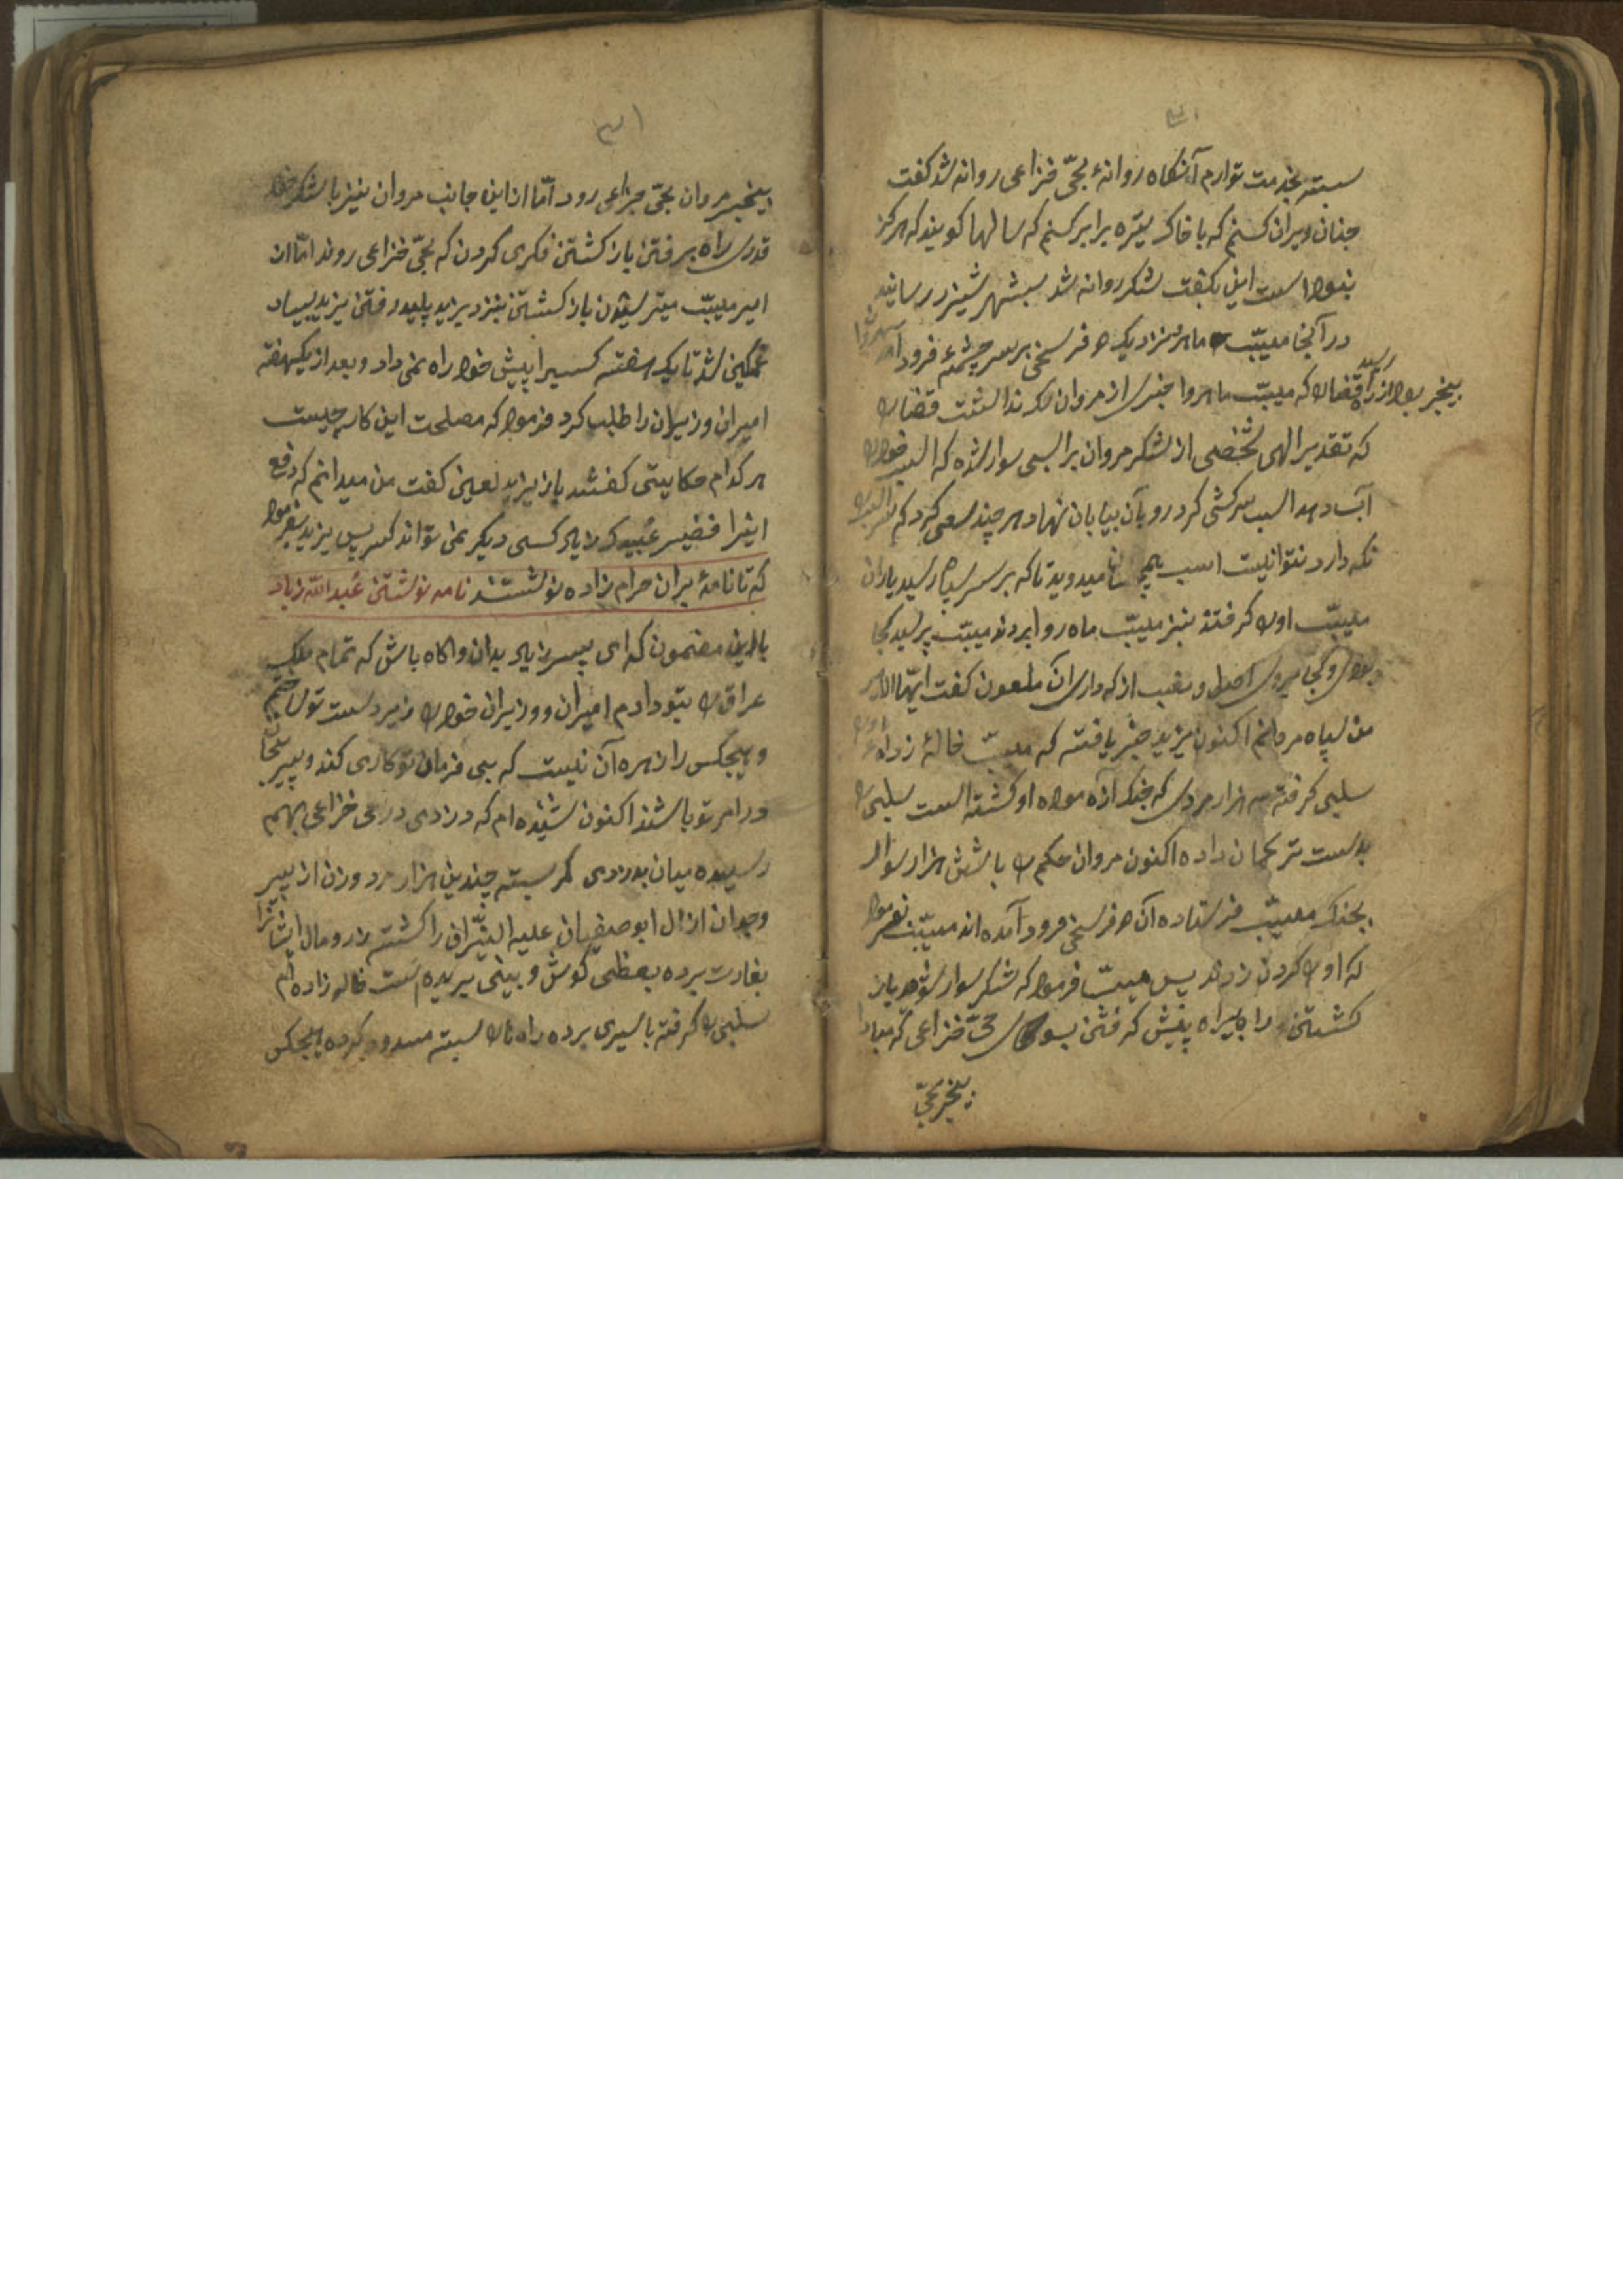 بسته بخدمت تو ارم آنگاه روانهٔ بحیّ خزاعی روانه شد گفت
چنان ویران کنم که با خاک تیره برابر کنم که سالها گویند که هرگز
نبود است این بگفت لشکر روانه شد بشهر شیزر رسانید
در آنجا مسیّب ماهرو نزدیک دو فرسخی بر سر چشمهٔ فرود آمد
بیخبر بود از راه قضا را که مسیّب ماهرو خبری از مروان نداشت قضا را
که تقدیر الهی شخصی از لشکر مروان بر اسبی سوار شده که اسب خود را
آب دهد اسب سرکشی کرد رو بآن بیابان نهاد هر چند سعی کرد که سر اسب را
نگه دارد نتوانست اسب میدوید تا که بر سر سپاه رسید یاران
مسیّب او را گرفتند بنزد مسیّب ماه رو ابردند مسیّب پرسید کجا
بودی و کجا میروی اصل و نسب از که داری آن ملعون گفت ایّها الامیر
من سپاه مروانم اکنون یزید خبر یافته که مسیّب خالهٔ زاده
سلیمی گرفته سه هزار مردی که جنک ازموده او کشته است سلیمی را
بدست ترکمان داده اکنون مروان حکم را با شش هزار سوار
بجنک مسیّب فرستاده آن دو فرسخی فرود آمده اند مسیّب بفرمود
که او را گردن زدند پس مسیّب فرمود که لشکر سوار شوند باز
کشتن راه بیراه پیش گرفتن بسوی حیّ خزاعی که مبادا
بیخبر بحیّ
۳۱
بیخبر مروان بحیّ خزاعی رود امّا از این جانب مروان نیز با لشکر خود
قدری راه برفتن باز کشتن فکری کردن که بحیّ خزاعی روند امّا از
امیر مسیّب میترسیدن باز کشتن بنزد یزید پلید رفتن یزید بسیار
غمگین شد تا یک هفته کسیرا پیش خود راه نمی داد و بعد از یکهفته
امیران وزیران را طلب کرد فرمود که مصلحت این کار چیست
هر کدام حکایتی گفتند باز یزید لعین گفت من میدانم که دفع
اینرا عبید زیاد کسی دیگر نمی تواند کرد پس یزید بفرمود
که تا نامهٔ بران حرام زاده نوشتند نامه نوشتن عبدالله زیاد
بااین مضمون که ای پسر زیاد بدان و اکاه باش که تمام ملک
عراق را بتو دادم امیران و وزیران خود را زیر دست تو ساختم
و هیچکس را زهره آن نیست که بی فرمان تو کاری کند و
در امر تو باشند اکنون شنیده ام که دزدی در حی خزاعی بهم
رسیده میان بدزدی کمر بسته چندین هزار مرد و زن از پیر
و جوان از ال ابوصفیان علیه النیّران را کشته زر و مال ایشانرا
بغارت برده بعظی کوش و بینی بریده است خاله زاده ام
سلیمی را گرفته باسیری برده راه ها را بسته مسدود کرده هیچکس